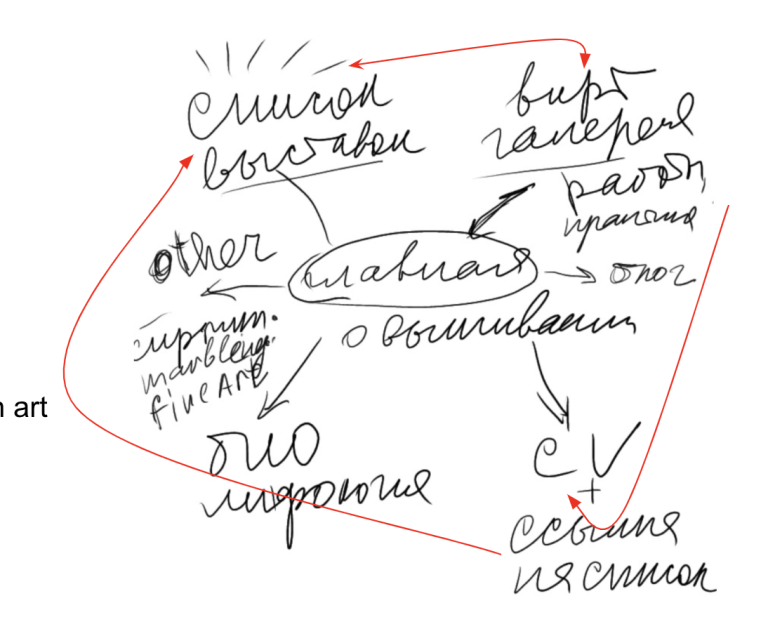 список
выставок
вирт
галерея
работы
other
главная
блог
о вышивании
marbleing.
fine Art
n art
био
мифология
CV
+
ссылка
на список